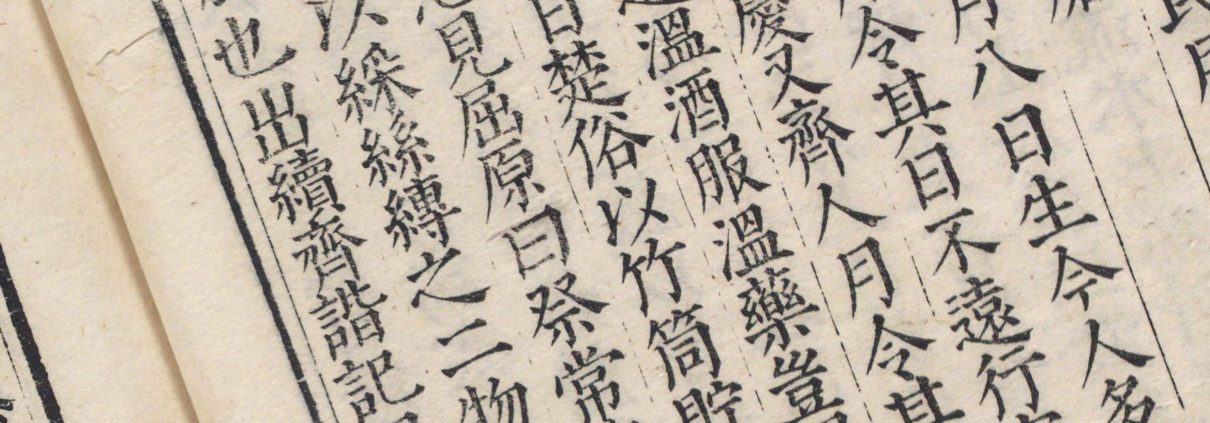 月八日生今人
令其日不遠行
慶又齊人月令其
溫酒服溫藥豈
日楚俗以竹筒貯
見屈原曰祭常
以綵絲縛之二物
也出續齊諧記